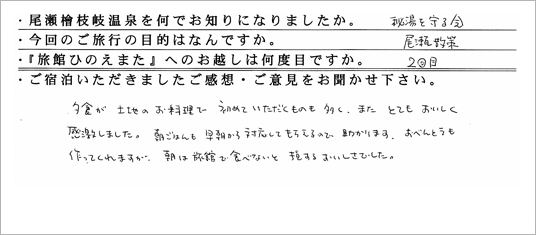 ・尾瀬檜枝岐温泉を何でお知りになりましたか。 秘湯を守る会
・今回のご旅行の目的はなんですか。 尾瀬散策
・『旅館ひのえまた』へのお越しは何度目ですか。 2回目
・ご宿泊いただきましたご感想・ご意見をお聞かせ下さい。
夕食が 土地のお料理で 初めていただくものも多く、また とてもおいしく
感激しました。 朝ごはんも 早朝から対応してもらえるので 助かります。おべんとうも
作ってくれますが、朝は旅館で食べないと 損するおいしさでした。